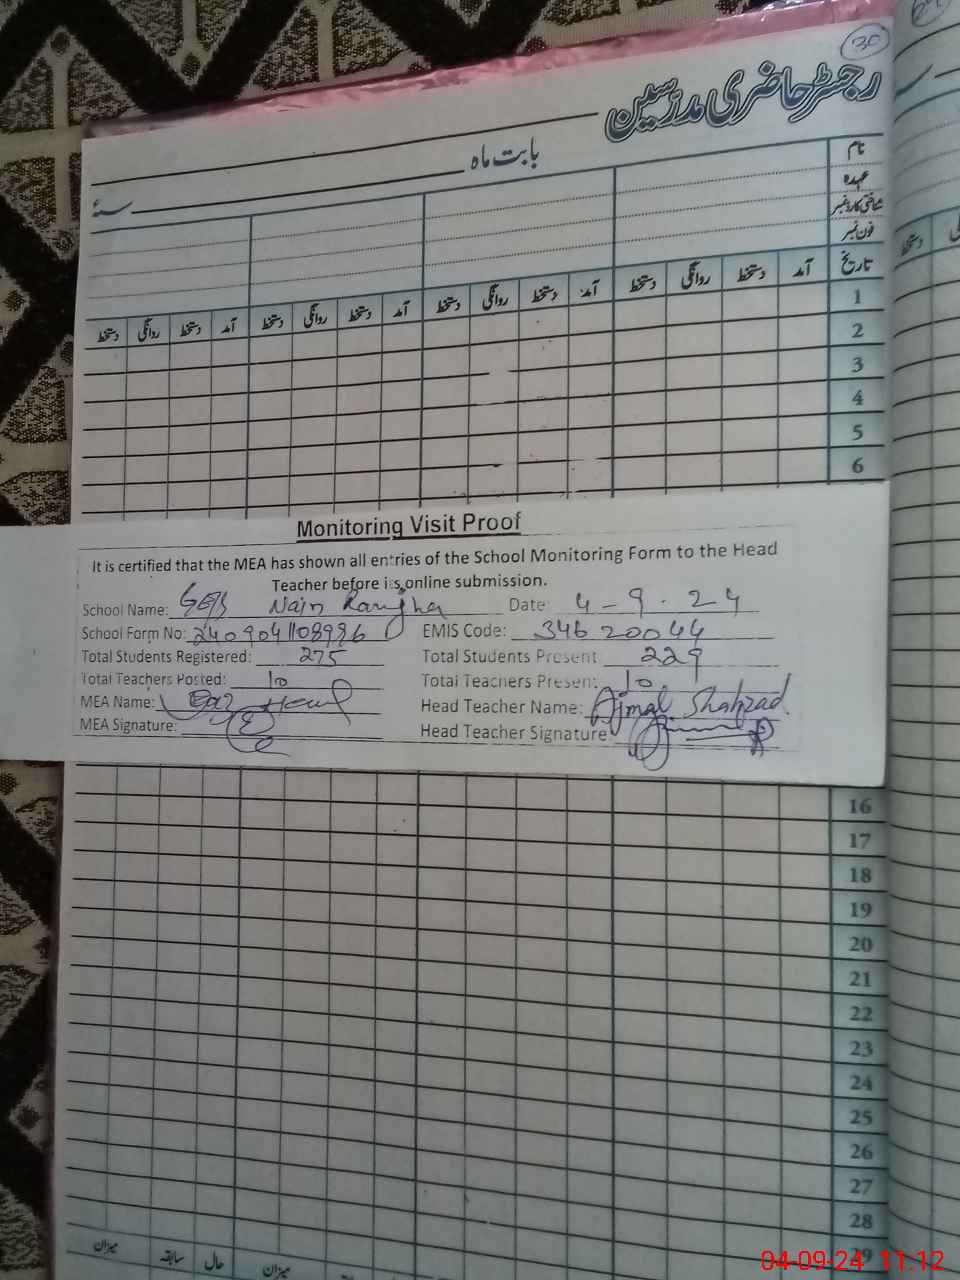 30
رجسٹر حاضری مدرسین
بابت ماہ
سنہ
نام
عہدہ
شناختی کارڈ نمبر
فون نمبر
تاریخ آمد دستخط روانگی دستخط آمد دستخط روانگی دستخط آمد دستخط روانگی دستخط آمد دستخط روانگی دستخط
دستخط
1
2
3
4
5
6
Monitoring Visit Proof
It is certified that the MEA has shown all entries of the School Monitoring Form to the Head
Teacher before its online submission.
School Name: Najn Ranjha Date: 4-9-24
School Form No: 240904108996 EMIS Code: 34620044
Total Students Registered: 275 Total Students Present 229
Total Teachers Posted: 10 Total Teachers Present: 10
MEA Name: Head Teacher Name: Ajmal Shahzad
MEA Signature: Head Teacher Signature
16
17
18
19
20
21
22
23
24
25
26
27
28
29
میزان سابقہ حال میزان
04-09-24 11:12